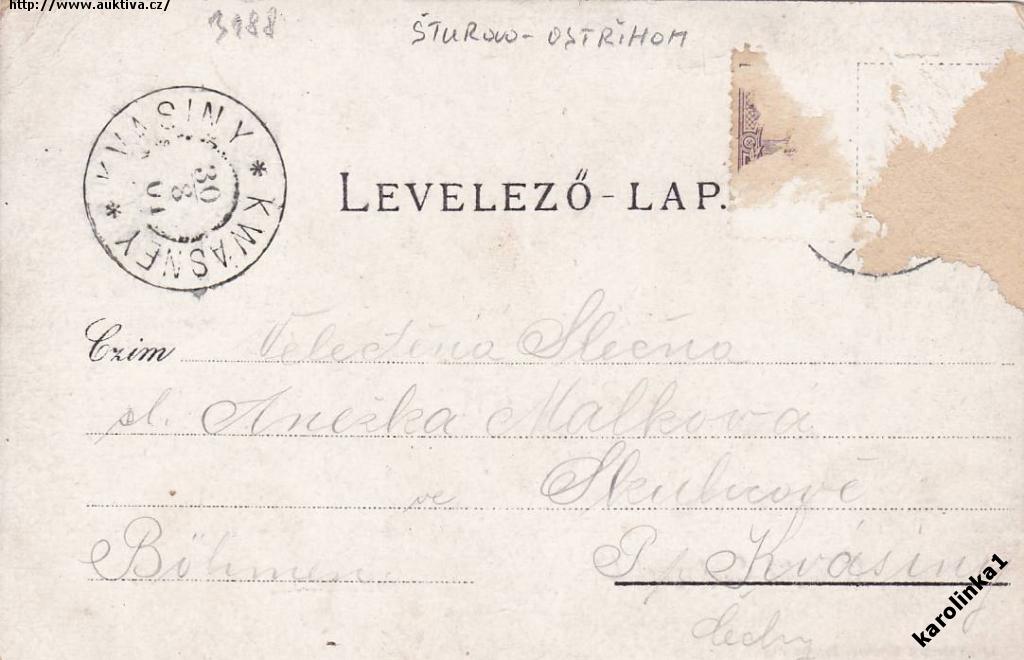 http://www.auktiva.cz/
3188
ŠTUROVO - OSTŘIHOM
KWASINY * KWASNEY *
30
8
01
LEVELEZŐ-LAP.
Czim Velectěná Slečna
sl. Anežka Malková
ve Skuhrově
Böhmen P. Kvasiny
Čechy
karolinka1